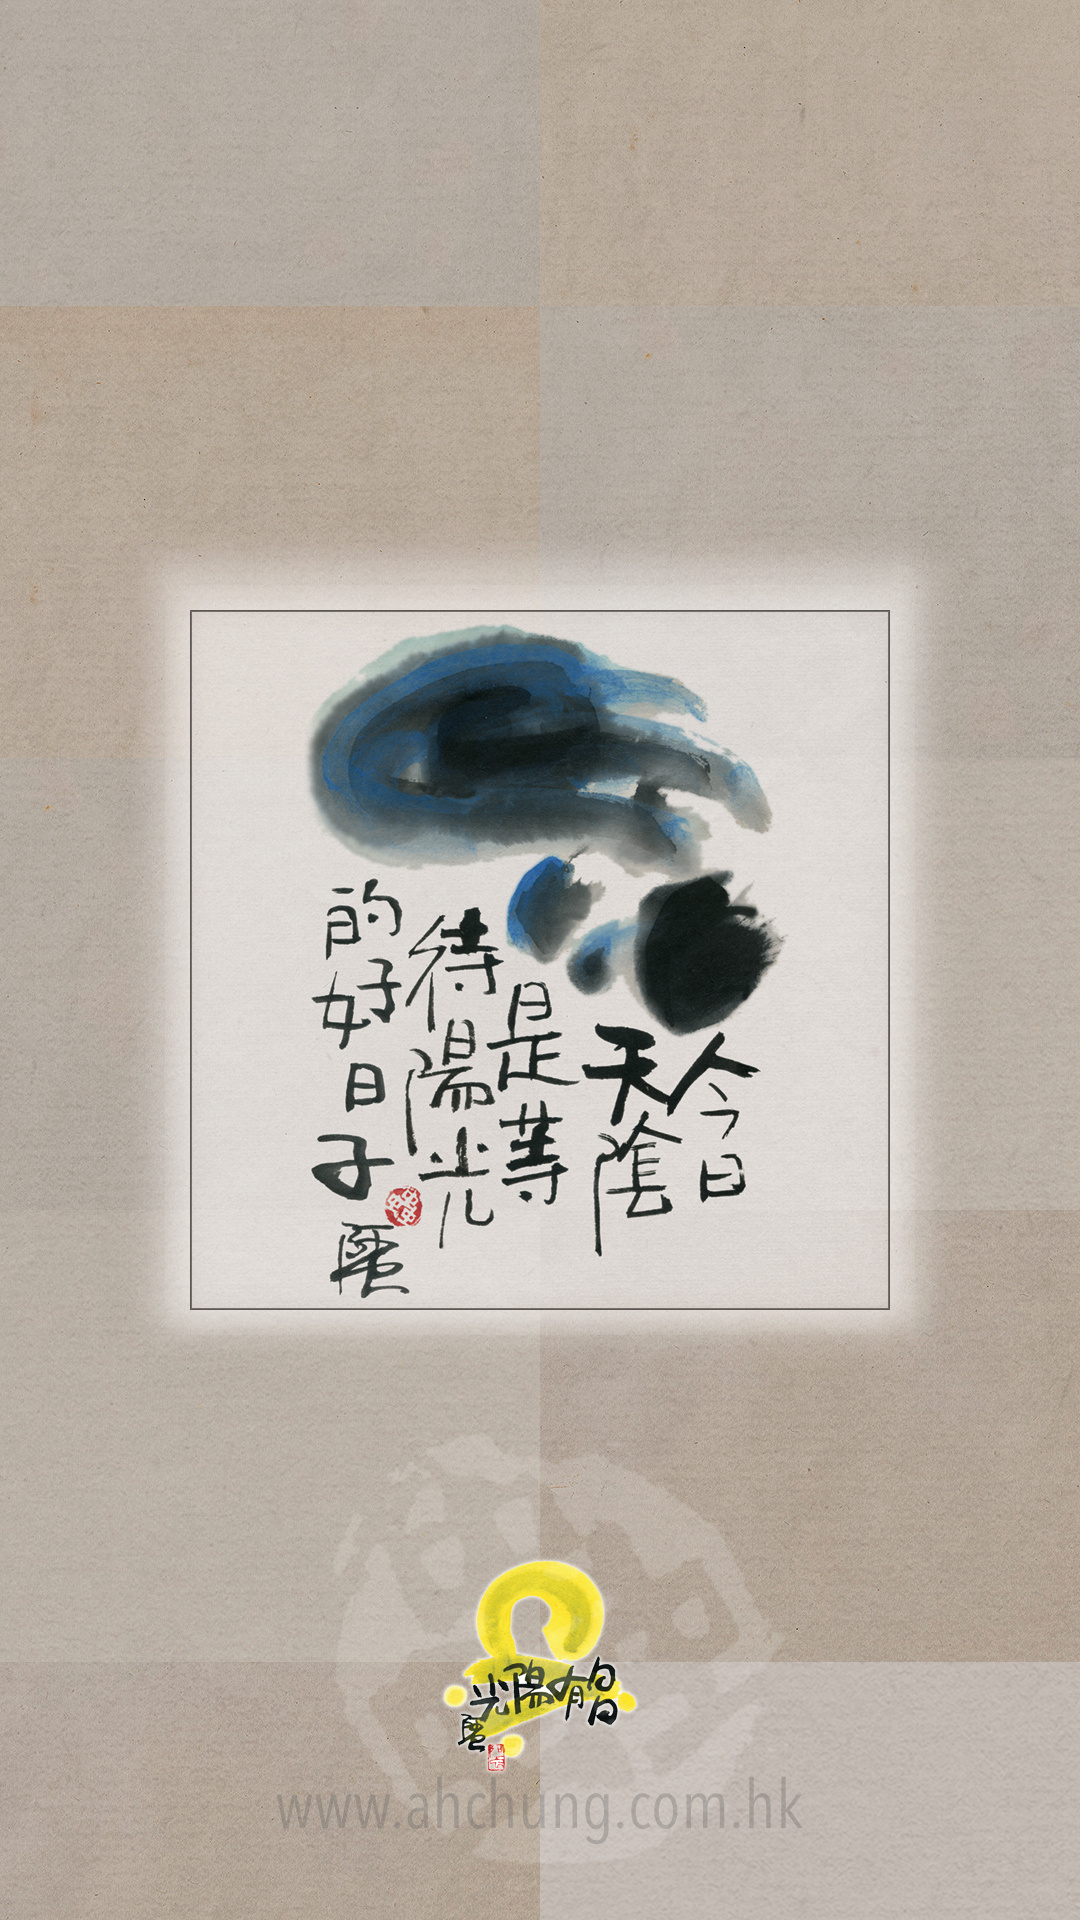 今日
天陰
是等
待陽光
的好日子
日日有陽光
www.ahchung.com.hk